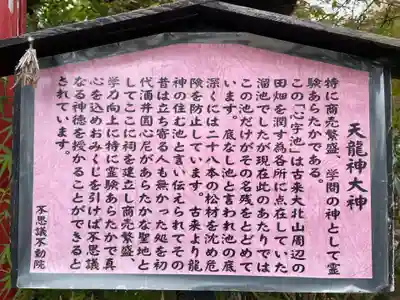 天龍神大神
特に商売繁盛、学問の神として霊
験あらたかである。
この「心字池」は古来大北山周辺の
田畑を潤す為各所に点在していた
溜池でしたが現在此のあたりでは
この池だけがその名残をとどめて
います。底なし池と言われ池の底
深くには二十八本の松材を沈め危
険を防止しています。古来より龍
神の住む池と言い伝えられてその
昔は立ち寄る人も無かった処を初
代酒井圓心尼があらたかな聖地と
してここに祠を建立し商売繁盛、
学力向上に特に霊験あらたかで真
心を込めおみくじを引けば不思議
なる神徳を授かることができると
されています。
不思議不動院